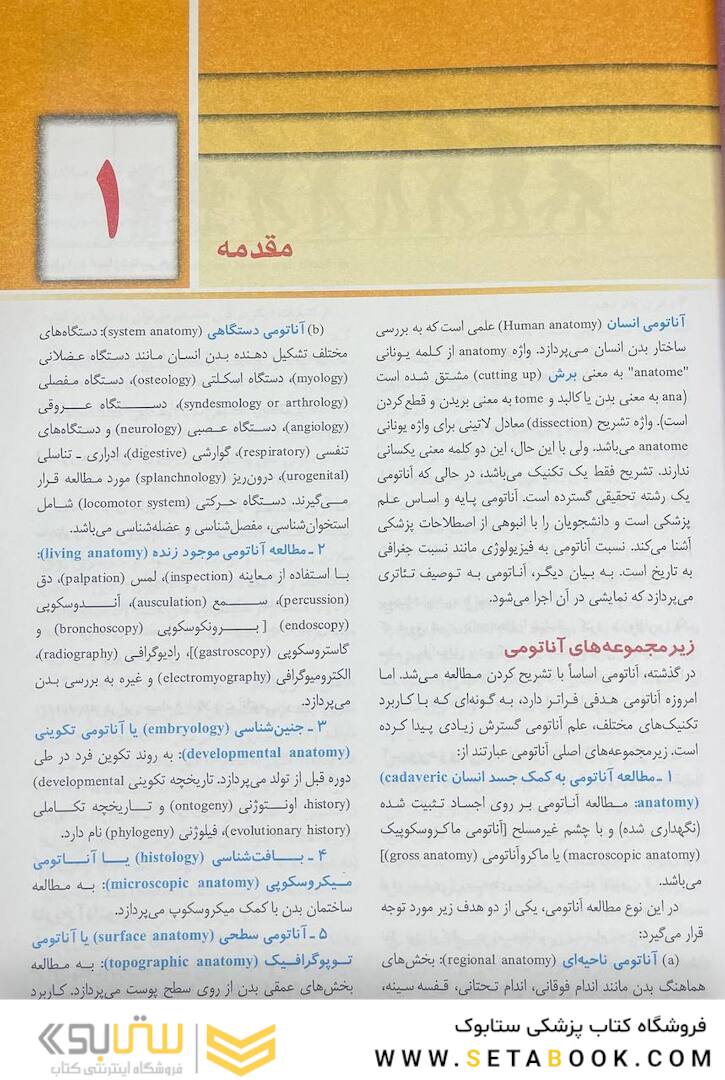 ۱
مقدمه
آناتومی انسان (Human anatomy) علمی است که به بررسی
ساختار بدن انسان می‌پردازد. واژه anatomy از کلمه یونانی
"anatome" به معنی برش (cutting up) مشتق شده است
(ana به معنی بدن یا کالبد و tome به معنی بریدن و قطع کردن
است). واژه تشریح (dissection) معادل لاتینی برای واژه یونانی
anatome می‌باشد. ولی با این حال، این دو کلمه معنی یکسانی
ندارند. تشریح فقط یک تکنیک می‌باشد، در حالی که آناتومی
یک رشته تحقیقی گسترده است. آناتومی پایه و اساس علم
پزشکی است و دانشجویان را با انبوهی از اصطلاحات پزشکی
آشنا می‌کند. نسبت آناتومی به فیزیولوژی مانند نسبت جغرافی
به تاریخ است. به بیان دیگر، آناتومی به توصیف تئاتری
می‌پردازد که نمایشی در آن اجرا می‌شود.
زیرمجموعه‌های آناتومی
در گذشته، آناتومی اساساً با تشریح کردن مطالعه می‌شد. اما
امروزه آناتومی هدفی فراتر دارد، به گونه‌ای که با کاربرد
تکنیک‌های مختلف، علم آناتومی گسترش زیادی پیدا کرده
است. زیرمجموعه‌های اصلی آناتومی عبارتند از:
۱ ـ مطالعه آناتومی به کمک جسد انسان (cadaveric
anatomy): مطالعه آناتومی بر روی اجساد تثبیت شده
(نگهداری شده) و با چشم غیرمسلح [آناتومی ماکروسکوپیک
(macroscopic anatomy) یا ماکروآناتومی (gross anatomy)]
می‌باشد.
در این نوع مطالعه آناتومی، یکی از دو هدف زیر مورد توجه
قرار می‌گیرد:
(a) آناتومی ناحیه‌ای (regional anatomy): بخش‌های
هماهنگ بدن مانند اندام فوقانی، اندام تحتانی، قفسه سینه،
(b) آناتومی دستگاهی (system anatomy): دستگاه‌های
مختلف تشکیل دهنده بدن انسان مانند دستگاه عضلانی
(myology)، دستگاه اسکلتی (osteology)، دستگاه مفصلی
(syndesmology or arthrology)، دستگاه عروقی
(angiology)، دستگاه عصبی (neurology) و دستگاه‌های
تنفسی (respiratory)، گوارشی (digestive)، ادراری ـ تناسلی
(urogenital)، درون‌ریز (splanchnology) مورد مطالعه قرار
می‌گیرند. دستگاه حرکتی (locomotor system) شامل
استخوان‌شناسی، مفصل‌شناسی و عضله‌شناسی می‌باشد.
۲ ـ مطالعه آناتومی موجود زنده (living anatomy):
با استفاده از معاینه (inspection)، لمس (palpation)، دق
(percussion)، سمع (ausculation)، آندوسکوپی
(endoscopy) [برونکوسکوپی (bronchoscopy) و
گاستروسکوپی (gastroscopy)]، رادیوگرافی (radiography)،
الکترومیوگرافی (electromyography) و غیره به بررسی بدن
می‌پردازد.
۳ ـ جنین‌شناسی (embryology) یا آناتومی تکوینی
(developmental anatomy): به روند تکوین فرد در طی
دوره قبل از تولد می‌پردازد. تاریخچه تکوینی (developmental
history)، اونتوژنی (ontogeny) و تاریخچه تکاملی
(evolutionary history)، فیلوژنی (phylogeny) نام دارد.
۴ ـ بافت‌شناسی (histology) یا آناتومی
میکروسکوپی (microscopic anatomy): به مطالعه
ساختمان بدن با کمک میکروسکوپ می‌پردازد.
۵ ـ آناتومی سطحی (surface anatomy) یا آناتومی
توپوگرافیک (topographic anatomy): به مطالعه
بخش‌های عمقی بدن از روی سطح پوست می‌پردازد. کاربرد
فروشگاه کتاب پزشکی ستابوک
WWW.SETABOOK.COM
ستابوک
فروشگاه اینترنتی کتاب